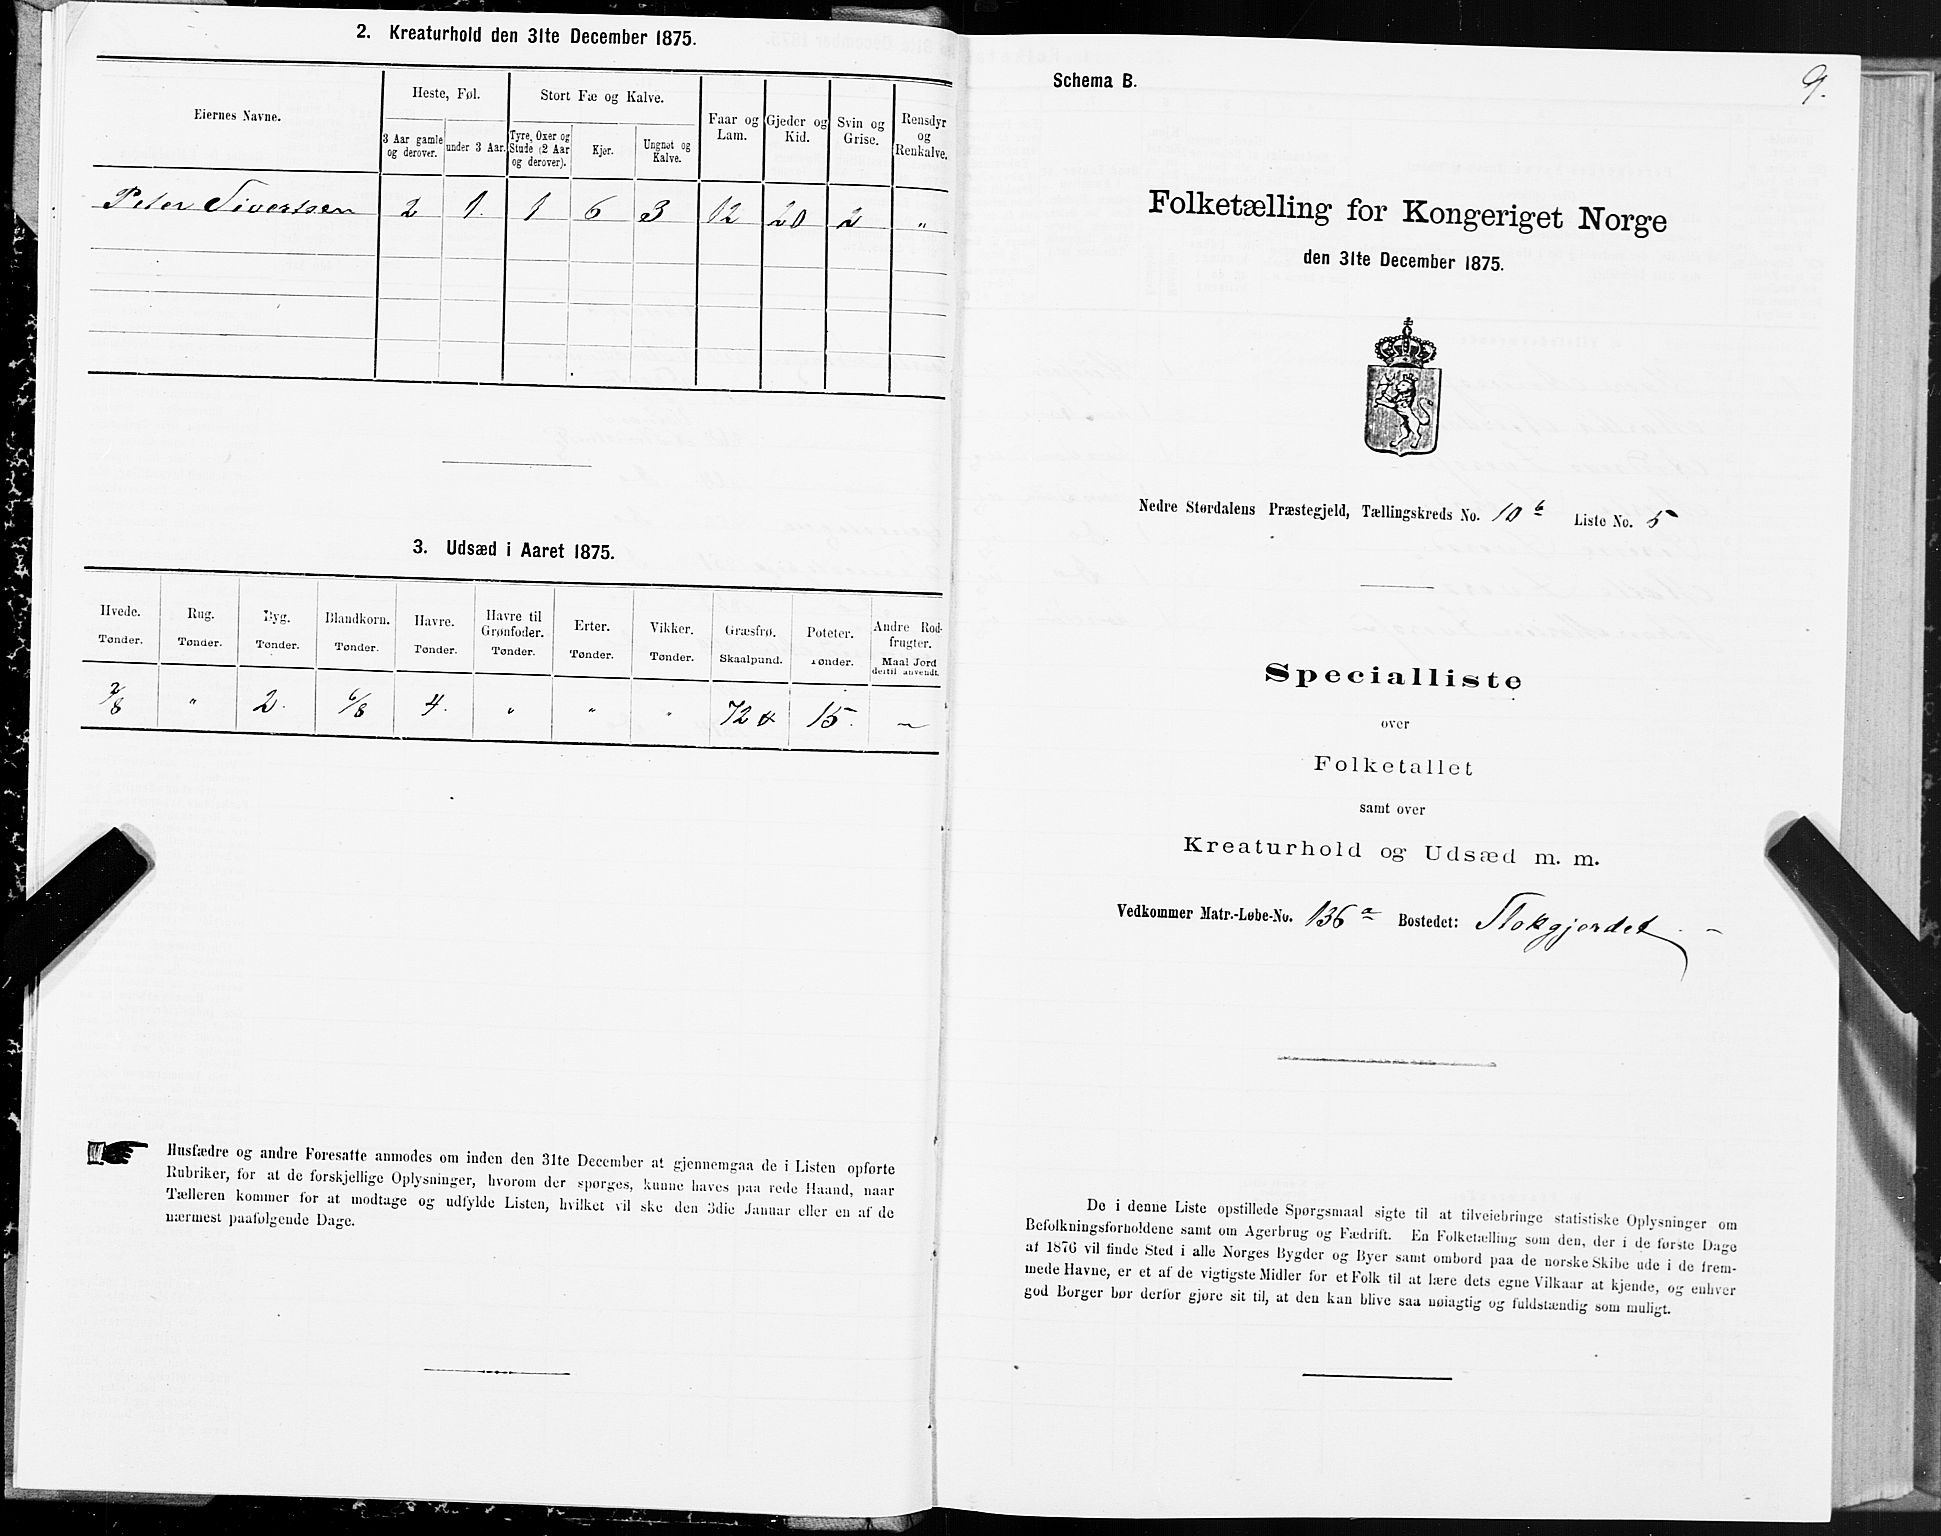 2. Kreaturhold den 31te December 1875.
Eiernes Navne.
Heste, Føl.
Stort Fæ og Kalve.
Faar og Lam.
Gjeder og Kid.
Svin og Grise.
Rensdyr og Renkalve.
3 Aar gamle og derover.
under 3 Aar.
Tyre, Oxer og Stude (2 Aar og derover).
Kjør.
Ungnøt og Kalve.
Peter Sivertsen 2 1. 1 6 3 12 20 2 "
3. Udsæd i Aaret 1875.
Hvede. Rug. Byg. Blandkorn. Havre. Havre til Grønfoder. Erter. Vikker. Græsfrø. Poteter. Andre Rodfrugter.
Tønder. Tønder. Tønder. Tønder. Tønder. Tønder. Tønder. Tønder. Skaalpund. Tønder. Maal Jord dertil anvendt.
2/8 " 2. 6/8 4. " " " 72 15. —
Husfædre og andre Foresatte anmodes om inden den 31te December at gjennemgaa de i Listen opførte
Rubriker, for at de forskjellige Oplysninger, hvorom der spørges, kunne haves paa rede Haand, naar
Tælleren kommer for at modtage og udfylde Listen, hvilket vil ske den 3die Januar eller en af de
nærmest paafølgende Dage.
Schema B.
9.
Folketælling for Kongeriget Norge
den 31te December 1875.
Nedre Størdalens Præstegjeld, Tællingskreds No. 10 b Liste No. 5
Specialliste
over
Folketallet
samt over
Kreaturhold og Udsæd m. m.
Vedkommer Matr.-Løbe-No. 136 a Bostedet: Stokgjerdet
De i denne Liste opstillede Spørgsmaal sigte til at tilveiebringe statistiske Oplysninger om
Befolkningsforholdene samt om Agerbrug og Fædrift. En Folketælling som den, der i de første Dage
af 1876 vil finde Sted i alle Norges Bygder og Byer samt ombord paa de norske Skibe ude i de frem-
mede Havne, er et af de vigtigste Midler for et Folk til at lære dets egne Vilkaar at kjende, og enhver
god Borger bør derfor gjøre sit til, at den kan blive saa nøiagtig og fuldstændig som muligt.